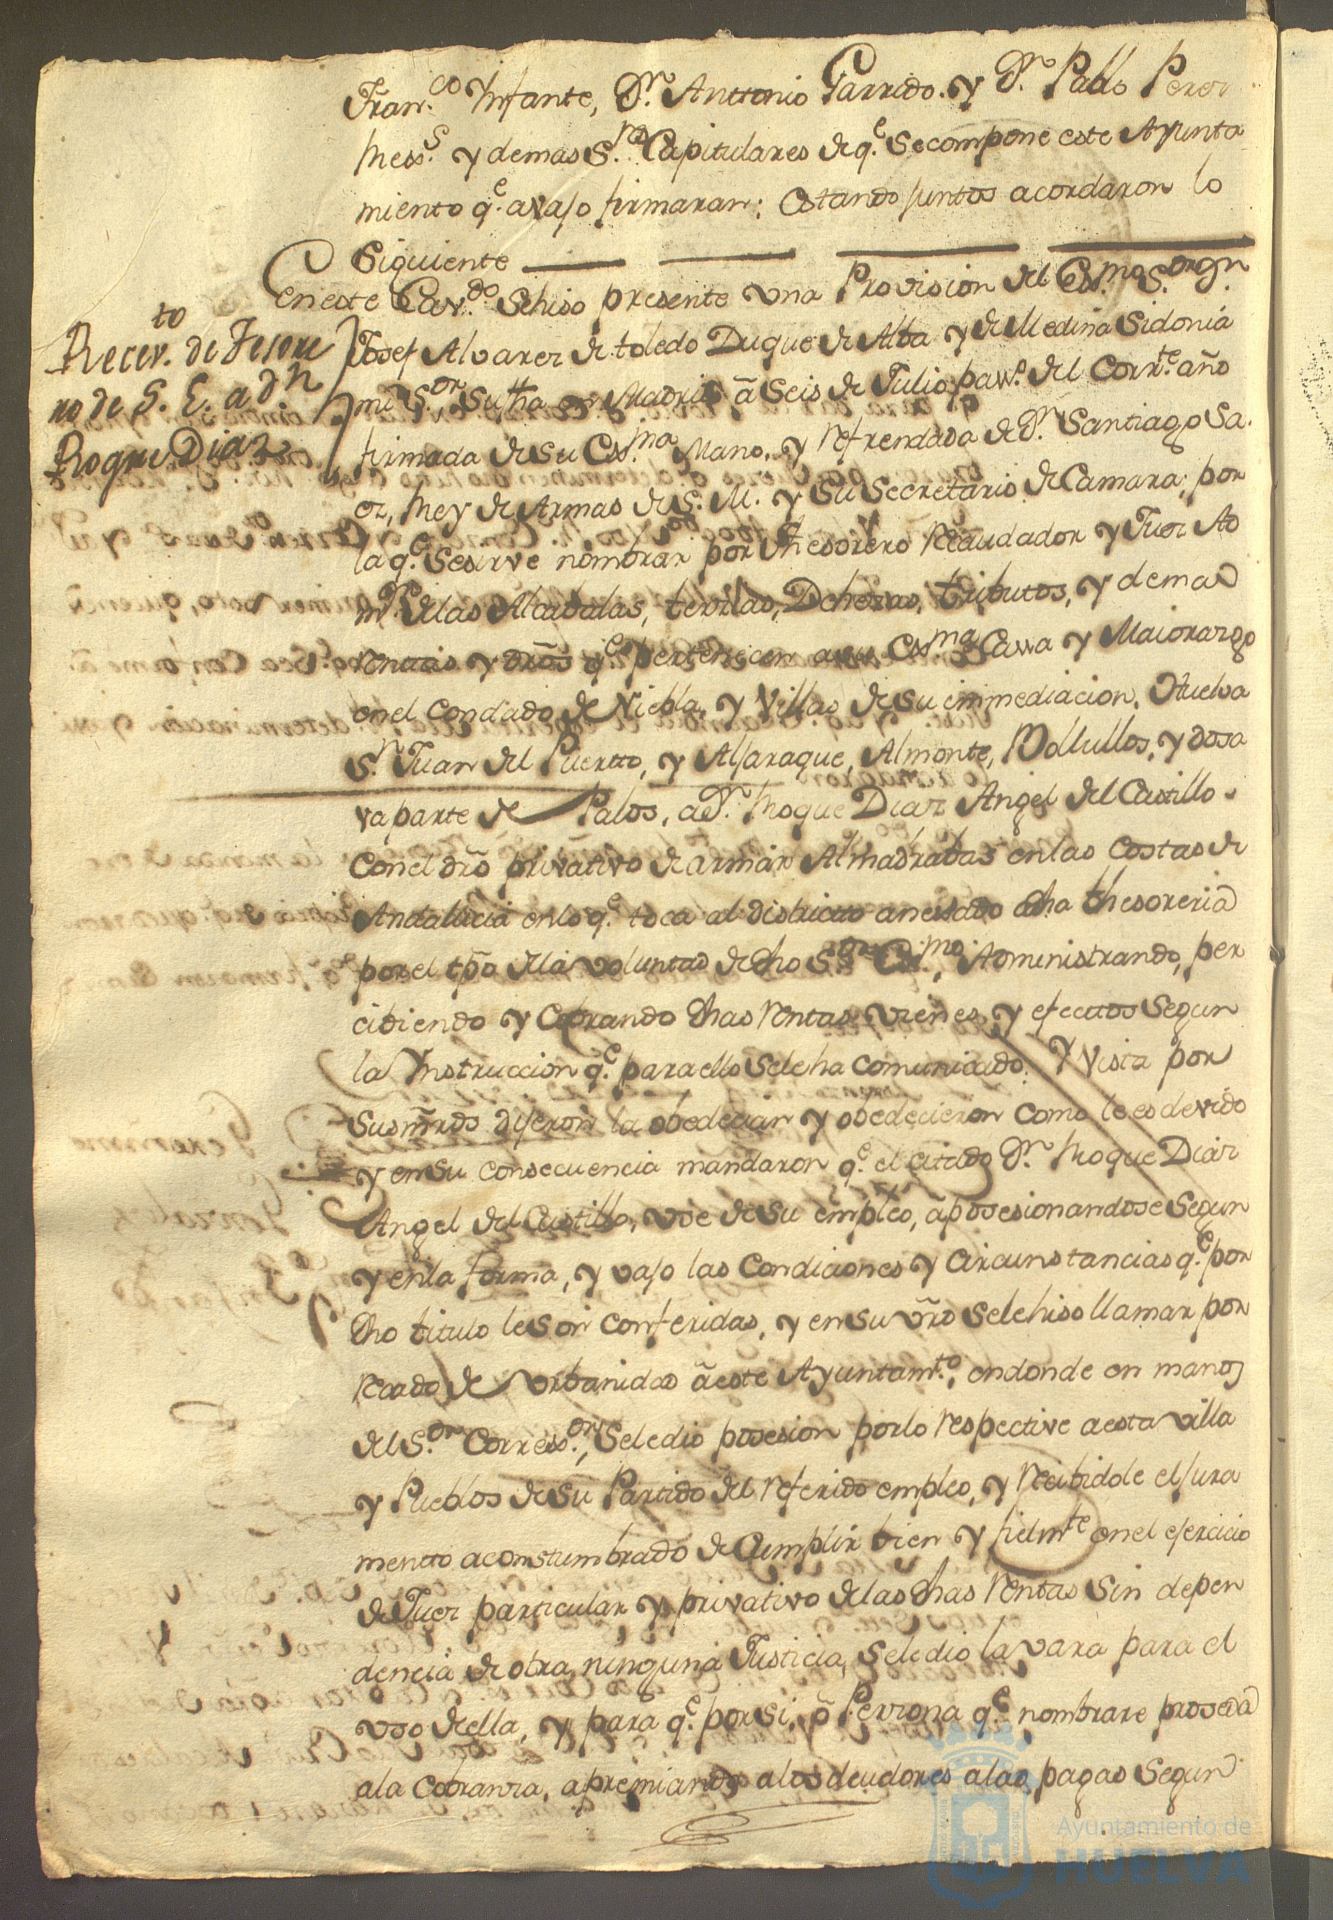 Fran.co Ynfante, Dn. Anttonio Garrido. y Dn. Pablo Perez
Mess.s y demas S.res Capitulares de q.e se compone este Ayunta
miento q.e avajo firmaran: Estando juntos acordaron lo
Siguiente
En este Cav.do Se hiso presente una Provision del Ex.mo S.or Dn.
Recev.to de Tesore
ro de S. E. a dn
Roque Diaz
Josef Alvarez de toledo Duque de Alba y de Medina Sidonia
mi S.or, Su fha en Madrid â Seis de Julio pas.do del Corr.te año
firmada de su Ex.ma Mano, y refrendada de Dn. Santiago Sa.
ez, Rey de Armas de S. M. y Su Secretario de Camara; por
la q.e Se sirve nombrar por Thesorero recaudador y Juez Ad
m.or de las Alcabalas, tercias, Dehezas, tributos, y demas
rentas y dros q.e pertenecen a su Ex.ma Casa y Maiorazgo
en el Condado de Niebla, y Villas de su immediacion, Huelva
Sn. Juan del Puertto, y Alfaraque, Almonte, Bollullos, y dosa
va parte de Palos, a Dn. Roque Diaz Angel del Castillo.
Con el dro privativo de armar Almadrabas en las Costas de
Andalucia en lo q.e toca al districto anessado a dha thesoreria
por el tpo de la voluntad de dho S.or Ex.mo, Administrando, per
cibiendo y Cobrando dhas rentas vienes y efecttos Segun
la Ynstruccion q.e para ello Se le ha comunicado. Y Vista por
Sus mrds dijeron la obedecian y obedecieron como le es devido
y en su consecuencia mandaron q.e el citado Dn. Roque Diaz
Angel del Castillo, use de su empleo, aposesionandose Segun
y en la forma, y vajo las Condiciones y Circunstancias q.e por
dho titulo le son conferidas, y en su vro Se le hiso llamar por
recado de urbanidad â este Ayuntam.to, en donde en manos
del S.or Corress.or, Se le dio posesion por lo respective a esta villa
y Pueblos de su Partido del referido empleo, y recibidole el jura
mentto aconstumbrado de Cumplir bien y fielm.te en el ejercicio
de Juez particular y privativo de las dhas rentas Sin depen
dencia de otra ninguna Justicia, Se le dio la vara para el
uso de ella, y para q.e por si, ô Perzona q.e nombrare proseda
a la Cobranza, apremiando a los deudores a las pagas Segun
Ayuntamiento de
HUELVA